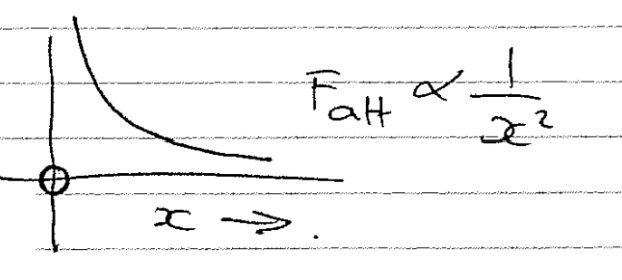 F_att ∝ 1/x²
x →.